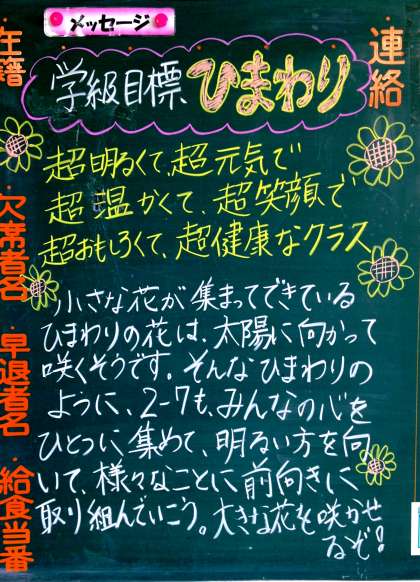 メッセージ
学級目標 ひまわり
超明るくて、超元気で
超温かくて、超笑顔で
超おもしろくて、超健康なクラス
小さな花が集まってできている
ひまわりの花は、太陽に向かって
咲くそうです。そんなひまわりの
ように、2-7も、みんなの心を
ひとつに集めて、明るい方を向
いて、様々なことに前向きに
取り組んでいこう。大きな花を咲かせ
るぞ!
連絡
在籍
・欠席者名
・早退者名
・給食当番